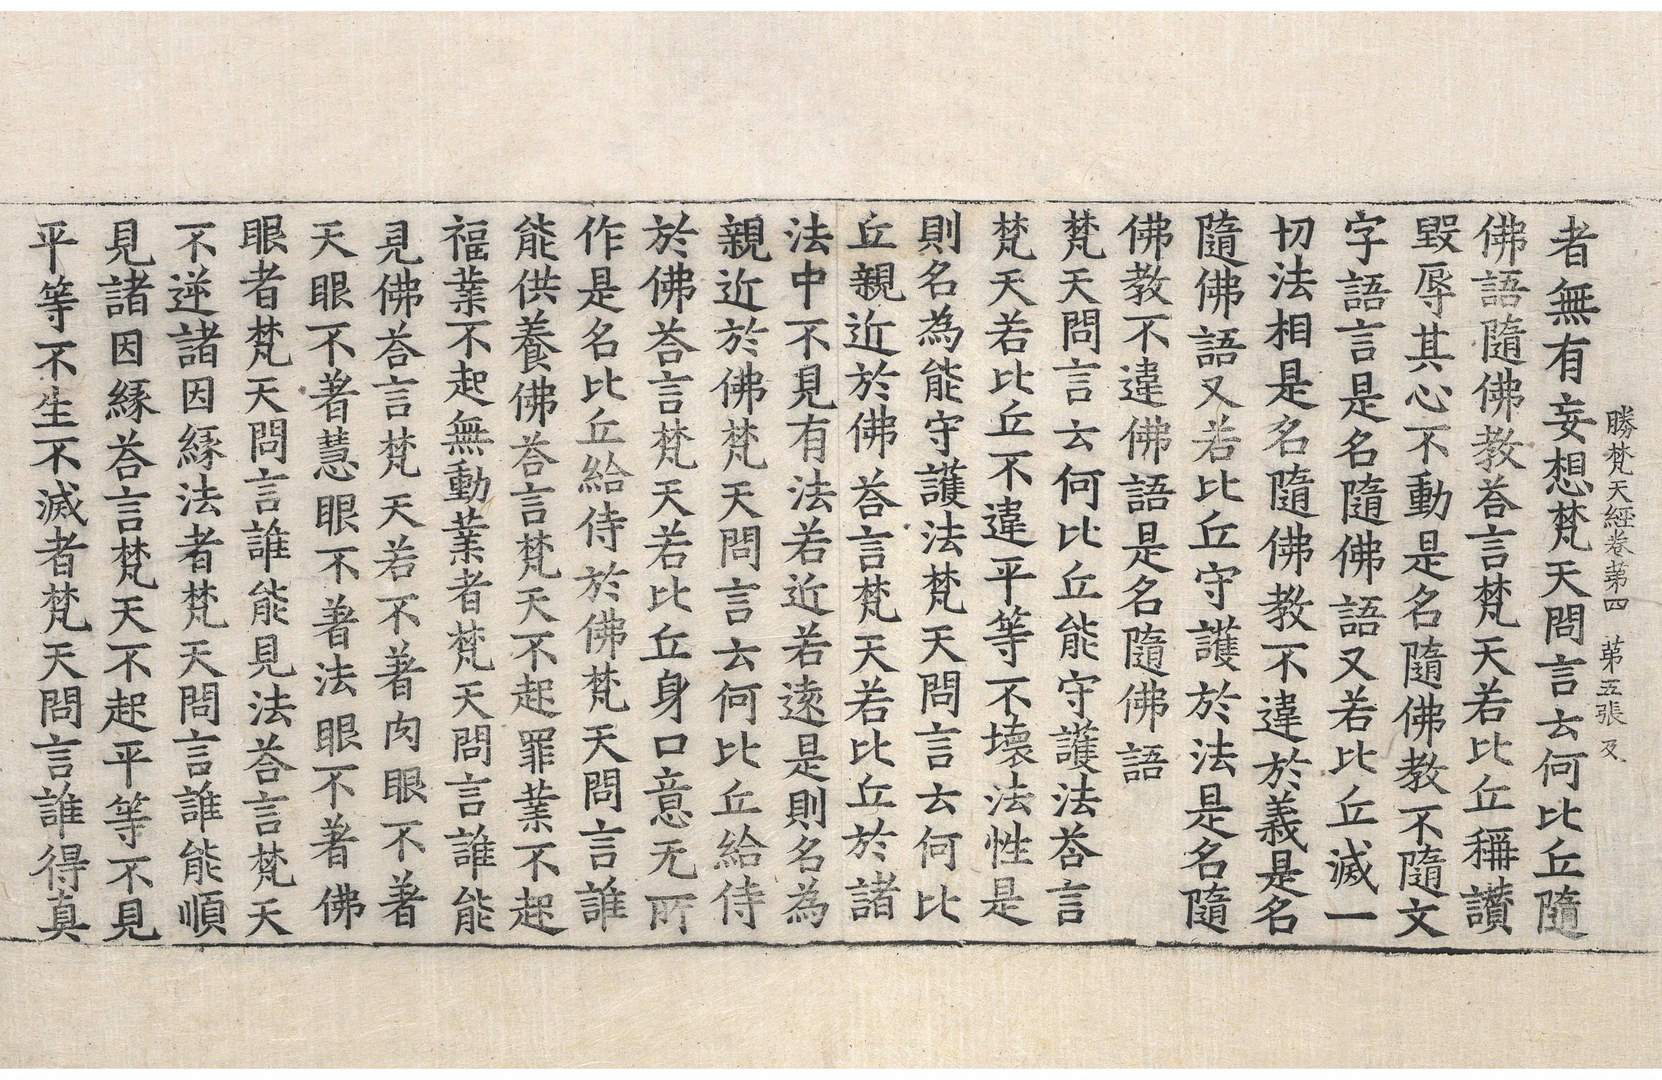 勝梵天經卷苐四　苐五張　及
者無有妄想梵天問言云何比丘隨
佛語隨佛教荅言梵天若比丘稱讃
毀辱其心不動是名隨佛教不隨文
字語言是名隨佛語又若比丘滅一
切法相是名隨佛教不違於義是名
隨佛語又若比丘守護於法是名隨
佛教不違佛語是名隨佛語
梵天問言云何比丘能守護法荅言
梵天若比丘不違平等不壞法性是
則名為能守護法梵天問言云何比
丘親近於佛荅言梵天若比丘於諸
法中不見有法若近若逺是則名為
親近於佛梵天問言云何比丘給侍
於佛荅言梵天若比丘身口意无所
作是名比丘給侍於佛梵天問言誰
能供養佛荅言梵天不起罪業不起
福業不起無動業者梵天問言誰能
見佛荅言梵天若不著肉眼不著
天眼不著慧眼不著法眼不著佛
眼者梵天問言誰能見法荅言梵天
不逆諸因縁法者梵天問言誰能順
見諸因縁荅言梵天不起平等不見
平等不生不滅者梵天問言誰得真